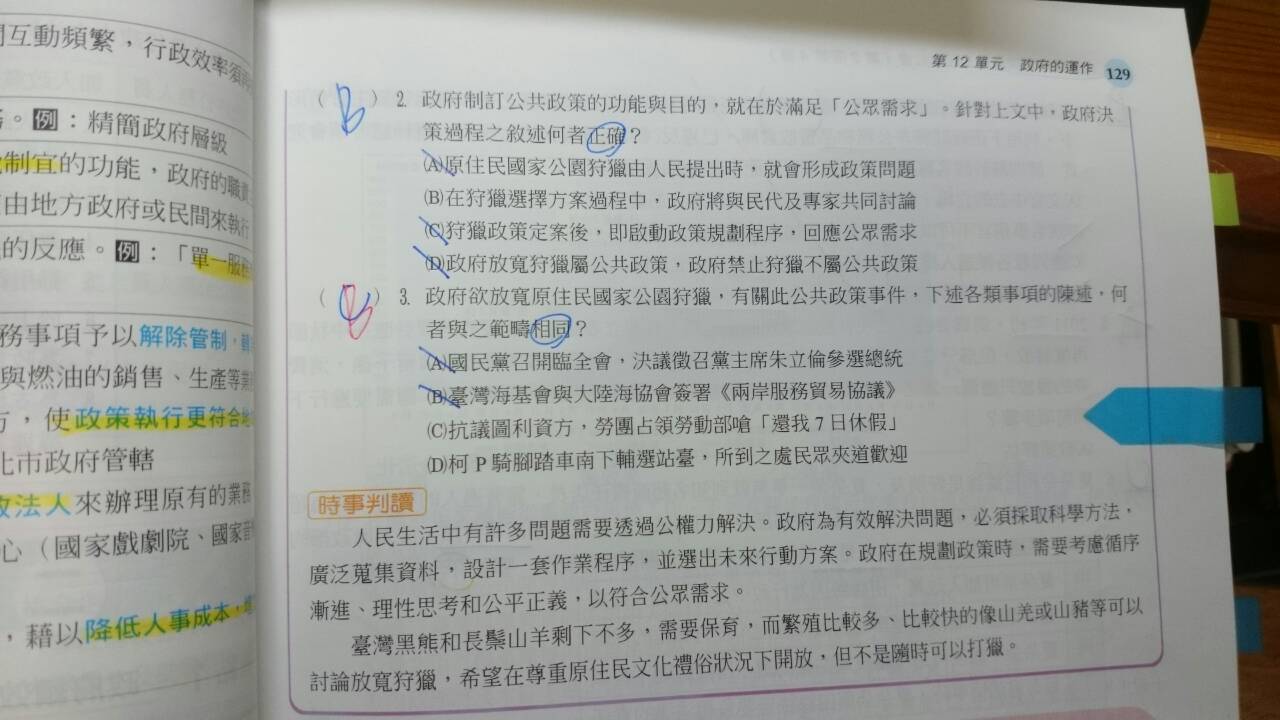 第 12 單元 政府的運作 129
( B ) 2. 政府制訂公共政策的功能與目的，就在於滿足「公眾需求」。針對上文中，政府決
策過程之敘述何者正確？
(A)原住民國家公園狩獵由人民提出時，就會形成政策問題
(B)在狩獵選擇方案過程中，政府將與民代及專家共同討論
(C)狩獵政策定案後，即啟動政策規劃程序，回應公眾需求
(D)政府放寬狩獵屬公共政策，政府禁止狩獵不屬公共政策
( ) 3. 政府欲放寬原住民國家公園狩獵，有關此公共政策事件，下述各類事項的陳述，何
者與之範疇相同？
(A)國民黨召開臨全會，決議徵召黨主席朱立倫參選總統
(B)臺灣海基會與大陸海協會簽署《兩岸服務貿易協議》
(C)抗議圖利資方，勞團占領勞動部嗆「還我 7 日休假」
(D)柯 P 騎腳踏車南下輔選站臺，所到之處民眾夾道歡迎
時事判讀
人民生活中有許多問題需要透過公權力解決。政府為有效解決問題，必須採取科學方法，
廣泛蒐集資料，設計一套作業程序，並選出未來行動方案。政府在規劃政策時，需要考慮循序
漸進、理性思考和公平正義，以符合公眾需求。
臺灣黑熊和長鬃山羊剩下不多，需要保育，而繁殖比較多、比較快的像山羌或山豬等可以
討論放寬狩獵，希望在尊重原住民文化禮俗狀況下開放，但不是隨時可以打獵。
互動頻繁，行政效率須
。例：精簡政府層級
制宜的功能，政府的職責
由地方政府或民間來執行
的反應。例：「單一服務
務事項予以解除管制，
與燃油的銷售、生產等業
方，使政策執行更符合地
北市政府管轄
政法人來辦理原有的業務
心（國家戲劇院、國家音
，藉以降低人事成本，